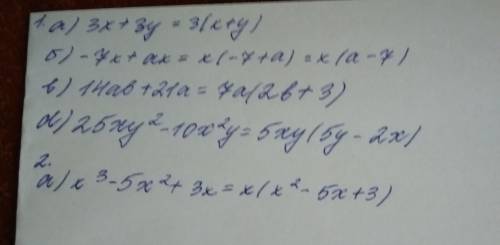 1. а) 3x + 3y = 3(x+y)
б) -7x + ax = x(-7+a) = x(a-7)
в) 14ab + 21a = 7a(2b+3)
d) 25xy² - 10x²y = 5xy(5y - 2x)
2.
а) x³ - 5x² + 3x = x(x² - 5x + 3)